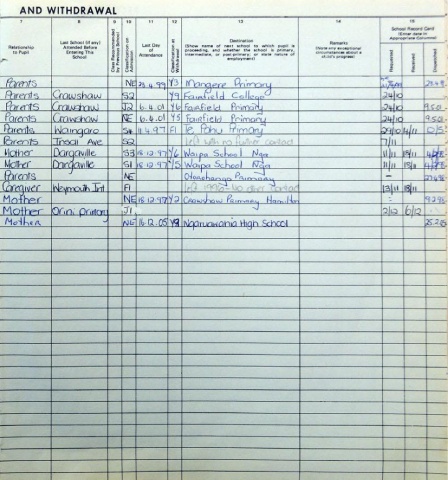 AND WITHDRAWAL
7 8 9 10 11 12 13 14 15
Relationship to Pupil
Last School (if any) Attended Before Entering This School
Class Recommended by Previous School
Classification on Admission
Last Day of Attendance
Classification at Withdrawal
Destination
(Show name of next school to which pupil is proceeding, and whether the school is primary, intermediate, or post-primary; or state nature of employment)
Remarks
(Note any exceptional circumstances about a child's progress)
School Record Card
(Enter date in Appropriate Column)
Requested
Received
Parents NE 23.4.99 Y3 Mangere Primary
Parents Crawshaw S2 Y9 Fairfield College 24/10
Parents Crawshaw J2 6.4.01 Y6 Fairfield Primary 24/10 9.5.01
Parents Crawshaw NE 6.4.01 Y5 Fairfield Primary 24/10 9.5.01
Parents Waingaro S4 11.4.97 F1 Te Pahu Primary 29/10 14/11
Parents Insoll Ave S2 left with no further contact 7/11
Mother Dargaville S3 18.12.97 Y6 Waipa School Nga 11/11 18/11
Mother Dargaville S1 18.12.97 Y5 Waipa School Nga 11/11 18/11
Parents NE Primary –
Caregiver Weymouth Int F1 no other contact 13/11 18/11
Mother NE 18.12.97 Y2 Crawshaw Primary Hamilton
Mother Orini J1 2/12 6/12
Mother NE 16.12.05 Y8 Ngaruawahia High School